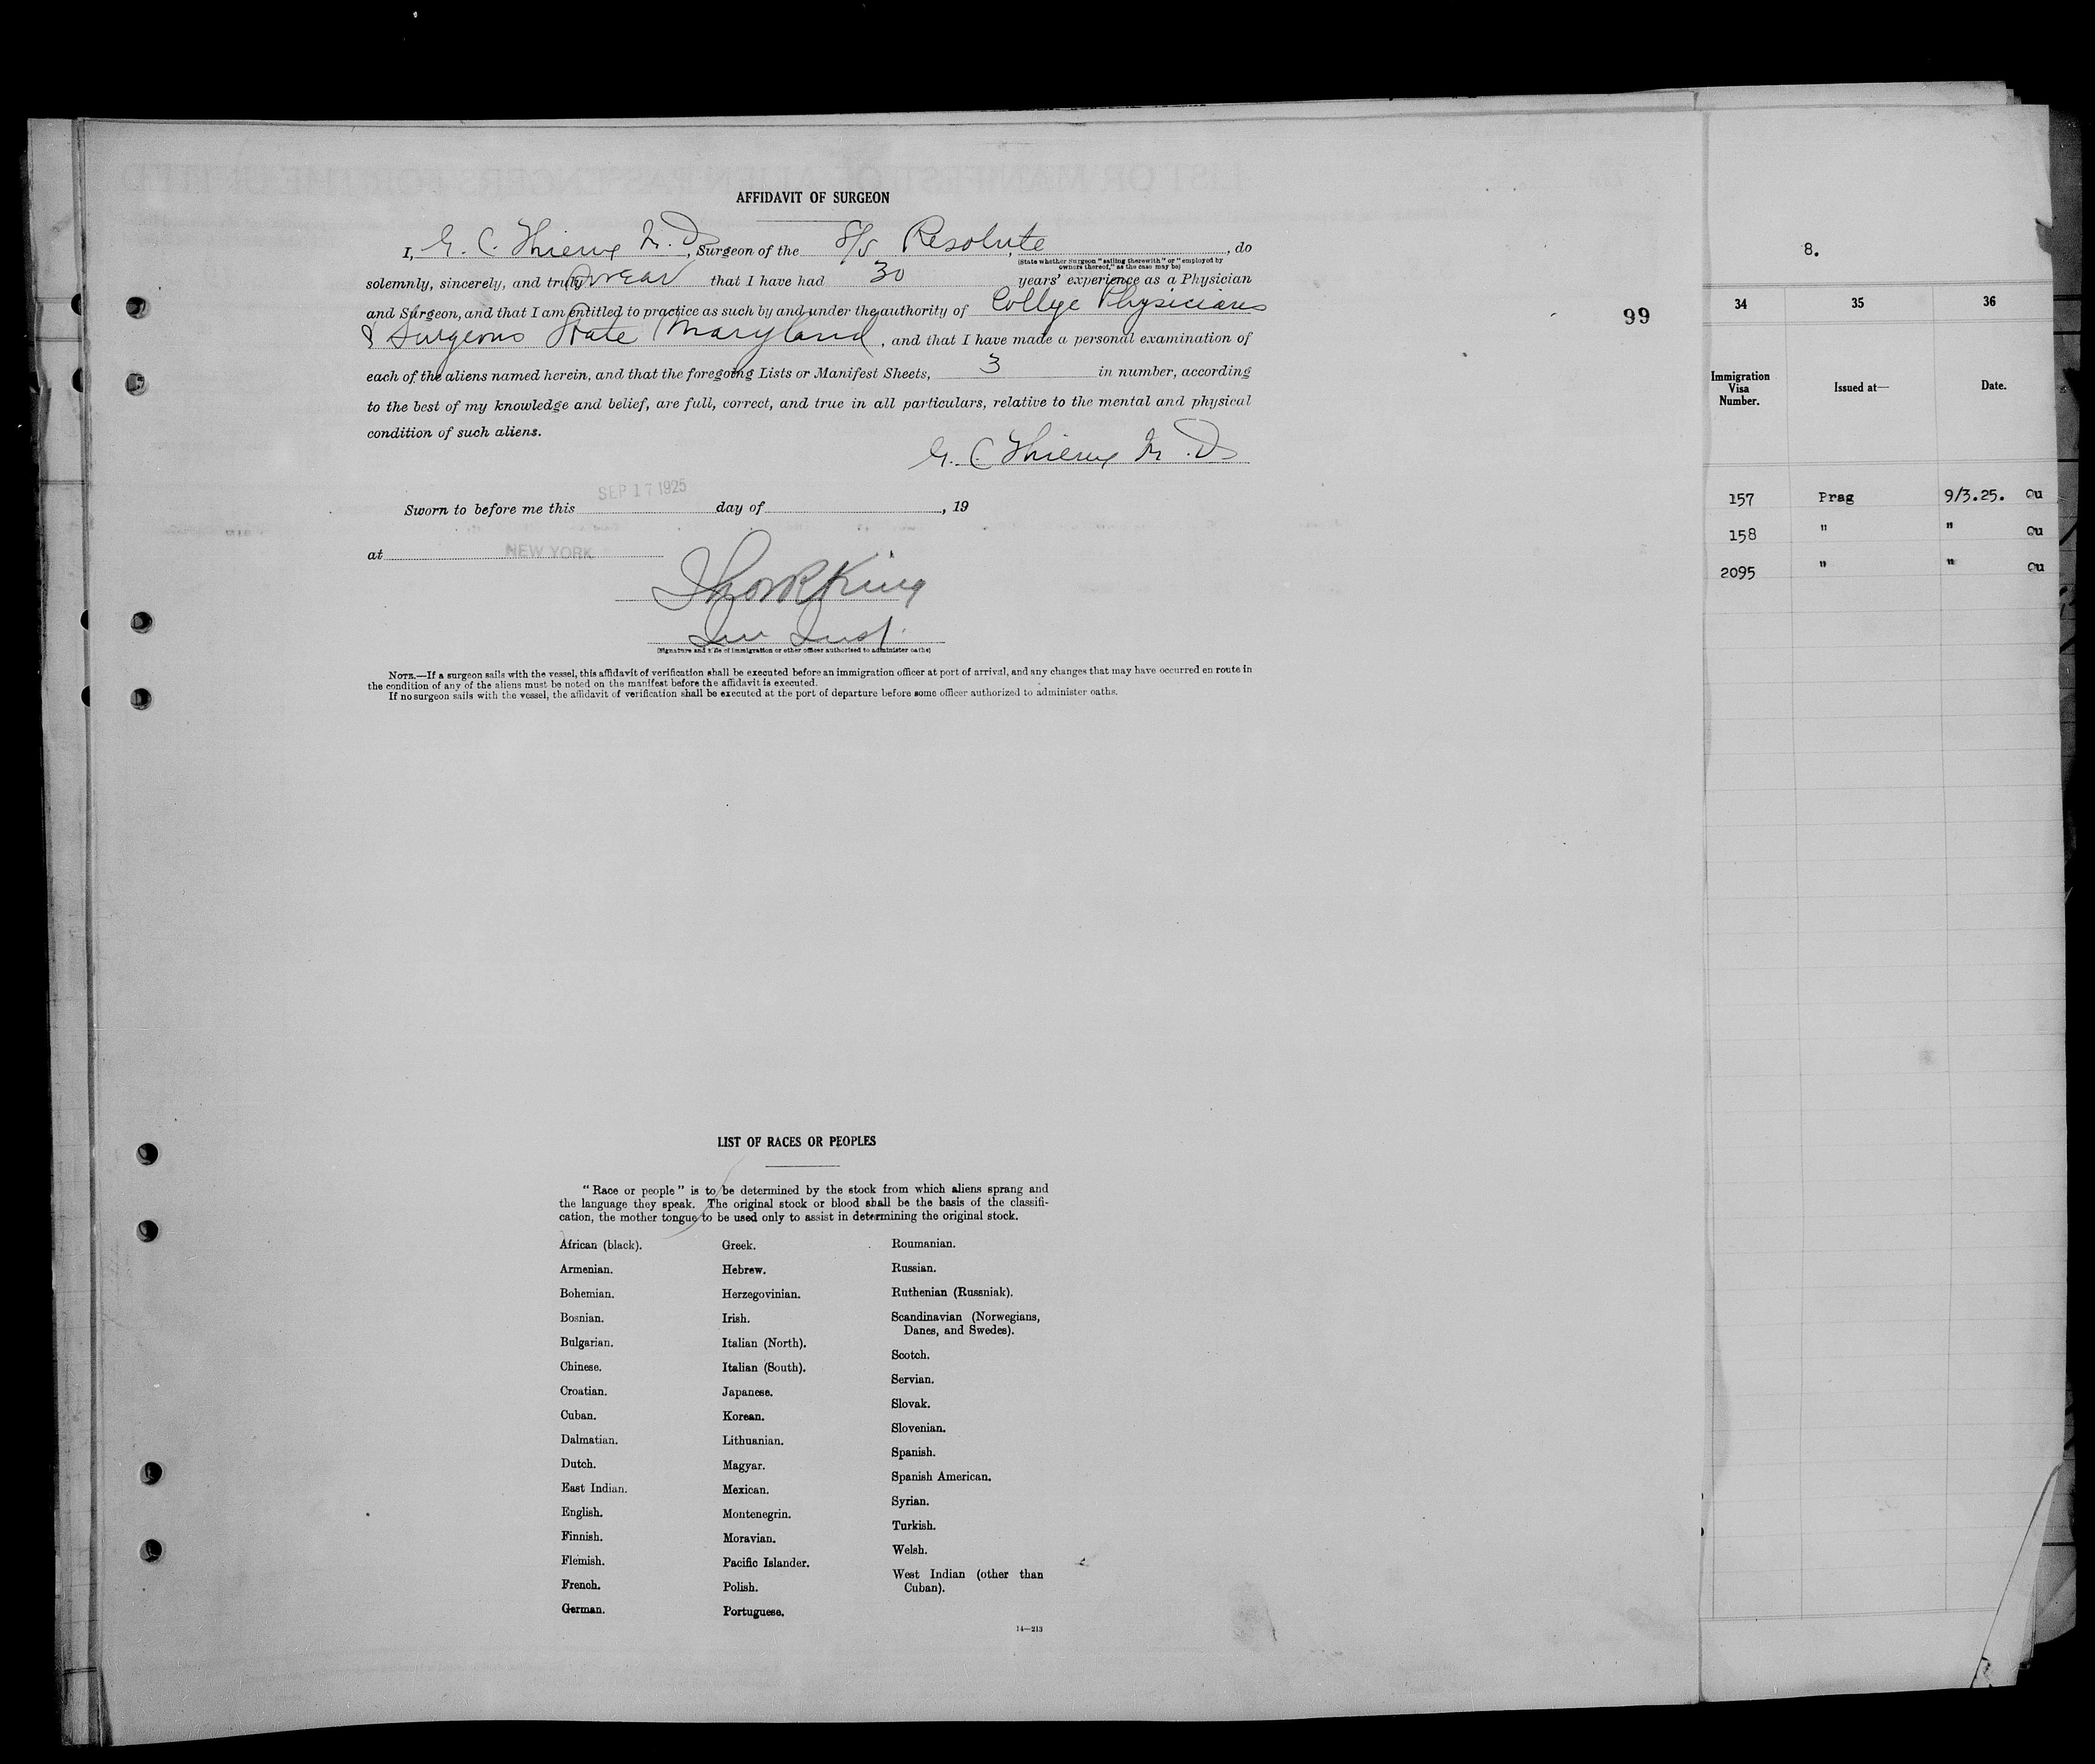 AFFIDAVIT OF SURGEON
I, G. C. M. D., Surgeon of the S/S Resolute, , do
(State whether Surgeon "sailing therewith" or "employed by
owners thereof," as the case may be)
solemnly, sincerely, and truly swear that I have had 30 years' experience as a Physician
and Surgeon, and that I am entitled to practice as such by and under the authority of College Physicians
& Surgeons State Maryland, and that I have made a personal examination of
each of the aliens named herein, and that the foregoing Lists or Manifest Sheets, 3 in number, according
to the best of my knowledge and belief, are full, correct, and true in all particulars, relative to the mental and physical
condition of such aliens.
G. C. M. D.
SEP 17 1925
Sworn to before me this day of , 19
at NEW YORK
King
(Signature and title of immigration or other officer authorized to administer oaths)
NOTE.—If a surgeon sails with the vessel, this affidavit of verification shall be executed before an immigration officer at port of arrival, and any changes that may have occurred en route in
the condition of any of the aliens must be noted on the manifest before the affidavit is executed.
If no surgeon sails with the vessel, the affidavit of verification shall be executed at the port of departure before some officer authorized to administer oaths.
LIST OF RACES OR PEOPLES
"Race or people" is to be determined by the stock from which aliens sprang and
the language they speak. The original stock or blood shall be the basis of the classifi-
cation, the mother tongue to be used only to assist in determining the original stock.
African (black).
Armenian.
Bohemian.
Bosnian.
Bulgarian.
Chinese.
Croatian.
Cuban.
Dalmatian.
Dutch.
East Indian.
English.
Finnish.
Flemish.
French.
German.
Greek.
Hebrew.
Herzegovinian.
Irish.
Italian (North).
Italian (South).
Japanese.
Korean.
Lithuanian.
Magyar.
Mexican.
Montenegrin.
Moravian.
Pacific Islander.
Polish.
Portuguese.
Roumanian.
Russian.
Ruthenian (Russniak).
Scandinavian (Norwegians,
Danes, and Swedes).
Scotch.
Servian.
Slovak.
Slovenian.
Spanish.
Spanish American.
Syrian.
Turkish.
Welsh.
West Indian (other than
Cuban).
14—213
99
8.
34 35 36
Immigration
Visa
Number.
Issued at—
Date.
157 Prag 9/3.25. Qu
158 " " Qu
2095 " " Qu